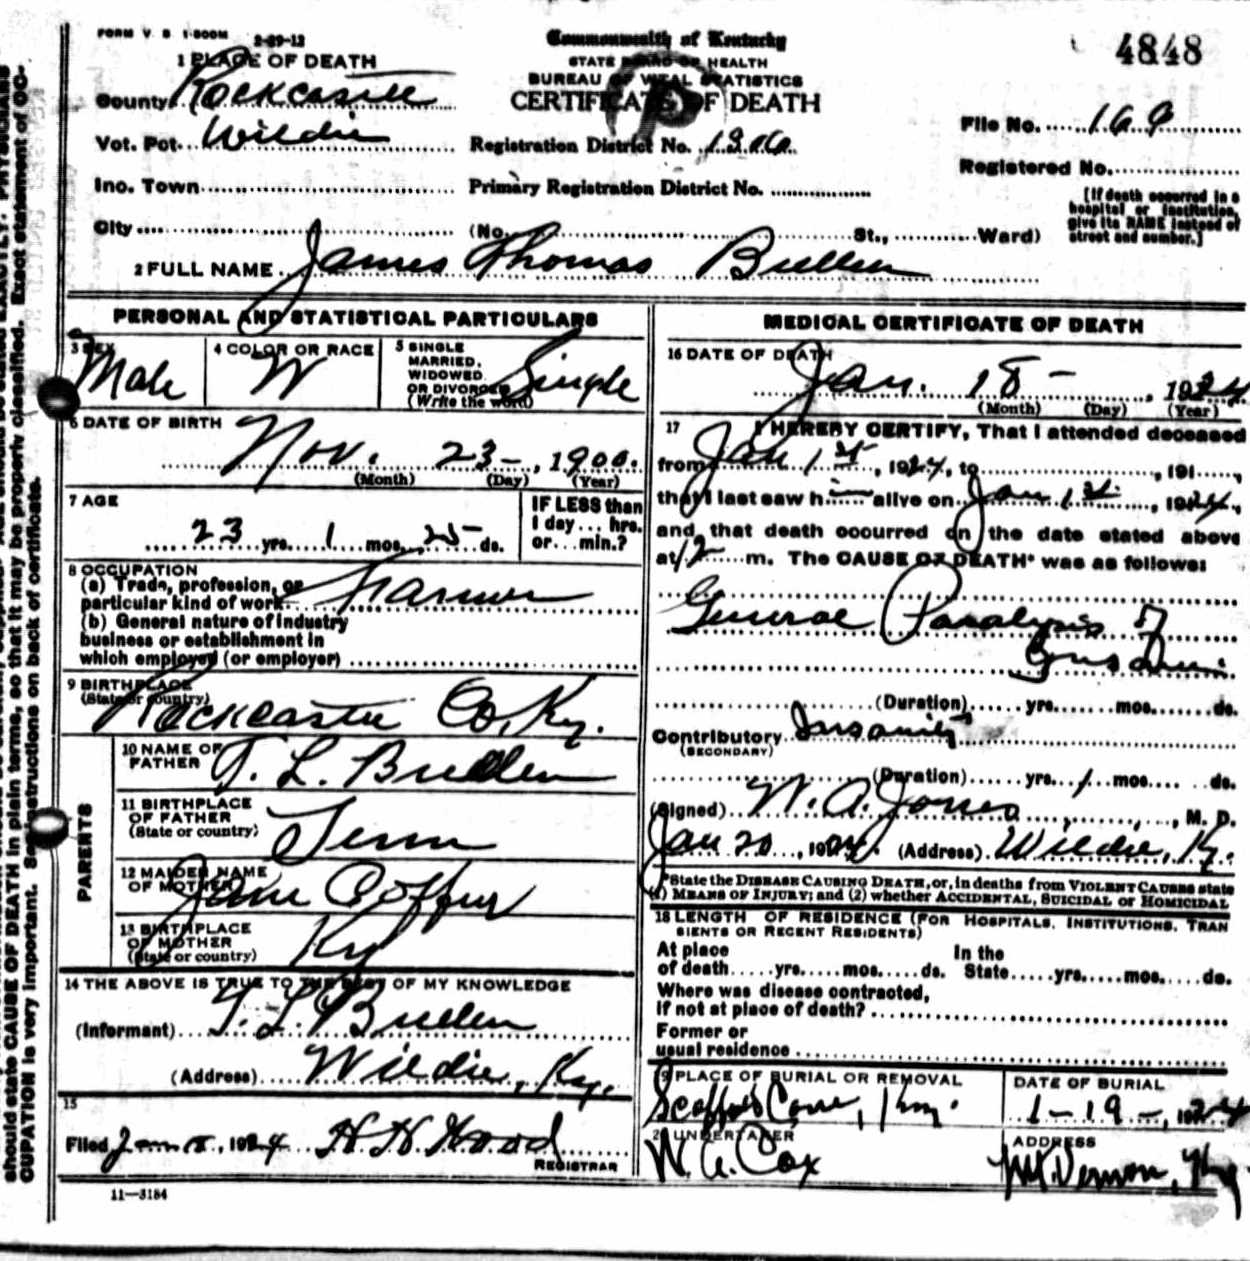 FORM V. S. 1-500M 2-29-12
Commonwealth of Kentucky
4848
STATE BOARD OF HEALTH
BUREAU OF VITAL STATISTICS
CERTIFICATE OF DEATH
1 PLACE OF DEATH
County Rockcastle
Vot. Pct. Wildie
Registration District No. 1306
File No. 169
Ino. Town
Primary Registration District No.
Registered No.
City (No. St., Ward)
[If death occurred in a
hospital or institution,
give its NAME instead of
street and number.]
2 FULL NAME James Thomas Bullen
PERSONAL AND STATISTICAL PARTICULARS
3 SEX
Male
4 COLOR OR RACE
W
5 SINGLE
MARRIED,
WIDOWED
OR DIVORCED
(Write the word)
Single
6 DATE OF BIRTH
Nov. 23-, 1900.
(Month) (Day) (Year)
7 AGE
23 yrs. 1 mos. 25 ds.
IF LESS than
1 day ... hrs.
or ... min.?
8 OCCUPATION
(a) Trade, profession, or
particular kind of work Farmer
(b) General nature of industry
business or establishment in
which employed (or employer)
9 BIRTHPLACE
(State or country)
Rockcastle Co, Ky.
PARENTS
10 NAME OF
FATHER
T. L. Bullen
11 BIRTHPLACE
OF FATHER
(State or country)
Tenn
12 MAIDEN NAME
OF MOTHER
Jane Coffey
13 BIRTHPLACE
OF MOTHER
(State or country)
Ky
14 THE ABOVE IS TRUE TO THE BEST OF MY KNOWLEDGE
(Informant) T. L. Bullen
(Address) Wildie, Ky.
15
Filed Jan, 1924 H. H. Wood
REGISTRAR
11-3184
MEDICAL CERTIFICATE OF DEATH
16 DATE OF DEATH
Jan. 18 -, 1924
(Month) (Day) (Year)
17 I HEREBY CERTIFY, That I attended deceased
from Jan 1st, 1924, to , 191
that I last saw him alive on Jan 1st, 1924,
and that death occurred on the date stated above
at 12 m. The CAUSE OF DEATH* was as follows:
General Paralysis of
Insane.
(Duration) yrs. mos. ds.
Contributory Insanity
(SECONDARY)
(Duration) yrs. 1 mos. ds.
(Signed) W. A. Jones, M. D.
Jan 20, 1924. (Address) Wildie, Ky.
*State the DISEASE CAUSING DEATH, or, in deaths from VIOLENT CAUSES state
(1) MEANS OF INJURY; and (2) whether ACCIDENTAL, SUICIDAL or HOMICIDAL
18 LENGTH OF RESIDENCE (FOR HOSPITALS, INSTITUTIONS, TRAN
SIENTS OR RECENT RESIDENTS)
At place In the
of death yrs. mos. ds. State yrs. mos. ds.
Where was disease contracted,
if not at place of death?
Former or
usual residence
19 PLACE OF BURIAL OR REMOVAL
Scaffold Cane, Ky.
DATE OF BURIAL
1-19-, 1924
20 UNDERTAKER
W. A. Cox
ADDRESS
Mt. Vernon, Ky
should state CAUSE OF DEATH in plain terms, so that it may be properly classified. Exact statement of OC-
CUPATION is very important. See instructions on back of certificate.